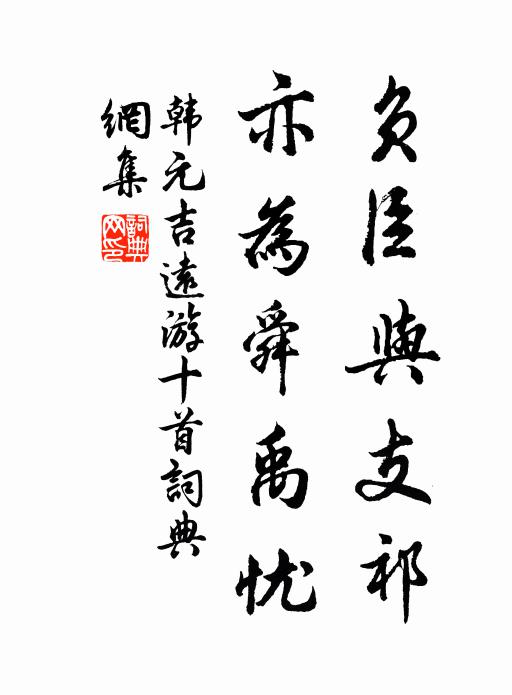 負臣與支祁
亦為舜禹忧
韩元吉遠游十首詞典
網集
詞典网印